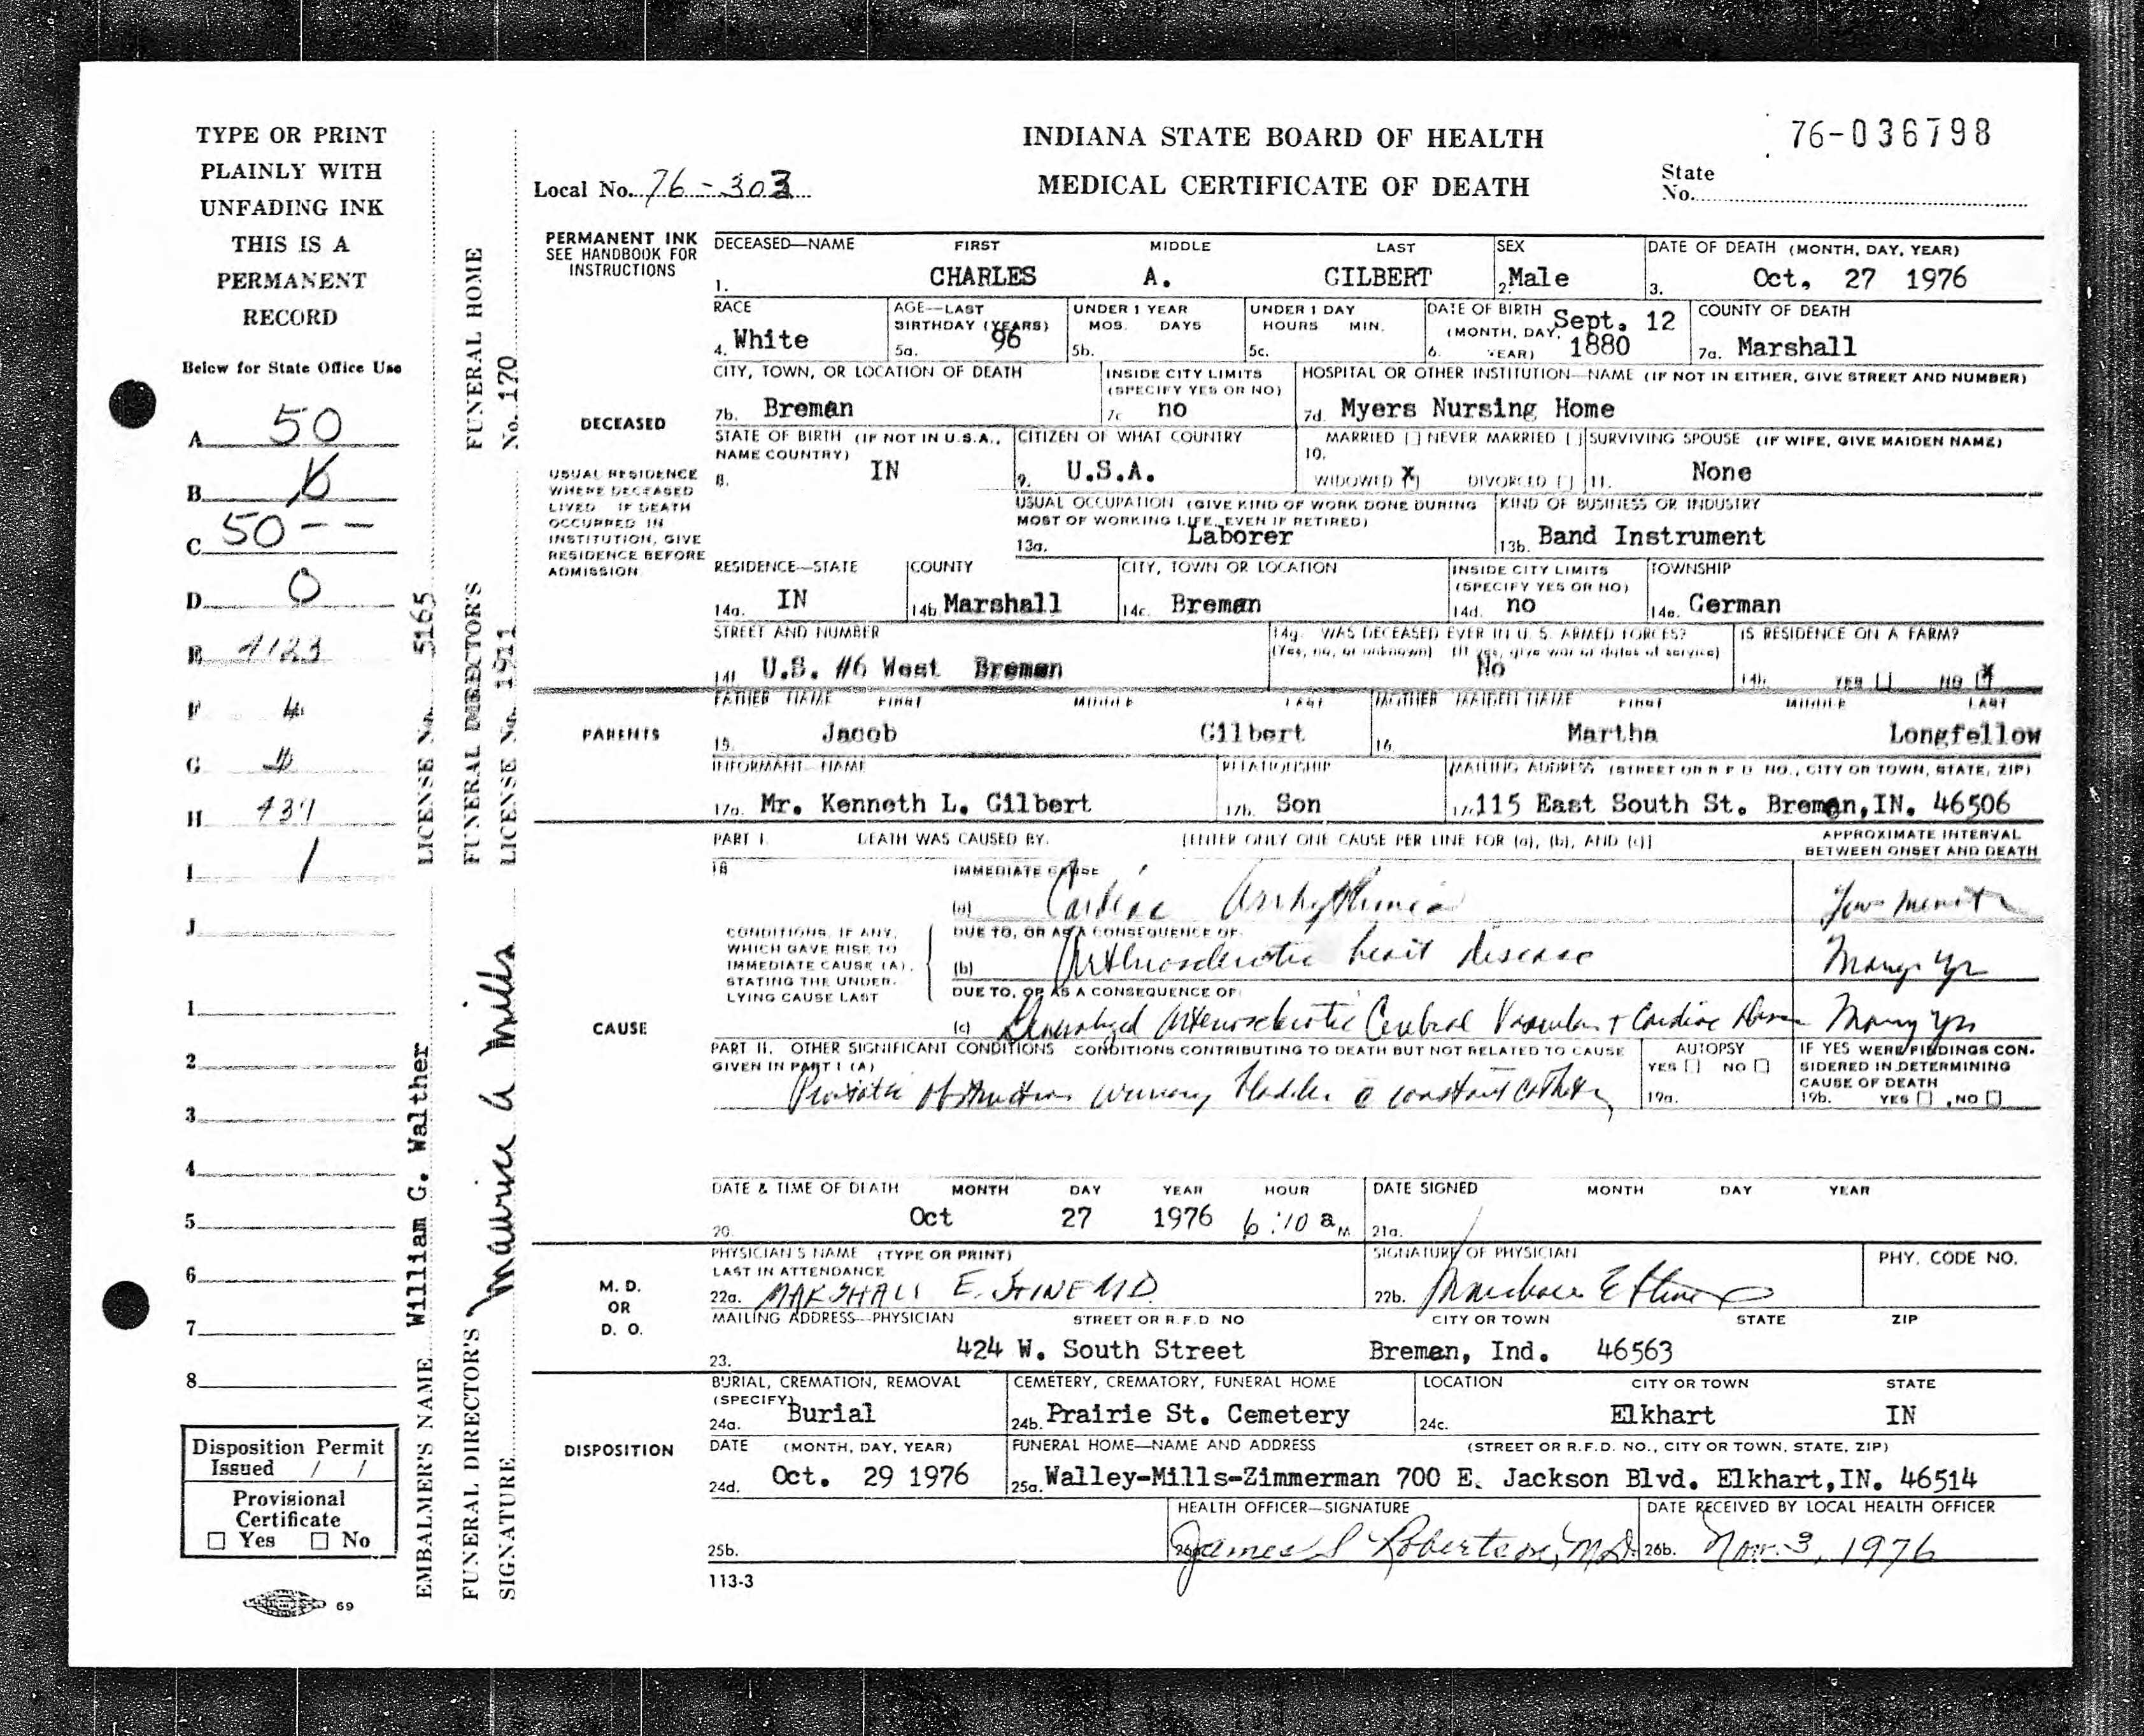 TYPE OR PRINT
PLAINLY WITH
UNFADING INK
THIS IS A
PERMANENT
RECORD
Below for State Office Use
A 50
B
C 50--
D 0
E 4123
F 4
G 4
H
I 1
J
1
2
3
4
5
6
7
8
Disposition Permit
Issued / /
Provisional
Certificate
☐ Yes ☐ No
69
EMBALMER'S NAME William G. Walther LICENSE No. 5165
FUNERAL DIRECTOR'S Maurice A Mills FUNERAL DIRECTOR'S FUNERAL HOME
SIGNATURE LICENSE No. 1911 No. 170
INDIANA STATE BOARD OF HEALTH
MEDICAL CERTIFICATE OF DEATH
76-036798
Local No. 76-303
State
No.
PERMANENT INK
SEE HANDBOOK FOR
INSTRUCTIONS
DECEASED
USUAL RESIDENCE
WHERE DECEASED
LIVED IF DEATH
OCCURRED IN
INSTITUTION, GIVE
RESIDENCE BEFORE
ADMISSION
DECEASED—NAME FIRST MIDDLE LAST SEX DATE OF DEATH (MONTH, DAY, YEAR)
1. CHARLES A. GILBERT 2. Male 3. Oct. 27 1976
RACE AGE—LAST UNDER 1 YEAR UNDER 1 DAY DATE OF BIRTH COUNTY OF DEATH
BIRTHDAY (YEARS) MOS. DAYS HOURS MIN. (MONTH, DAY, Sept. 12
4. White 5a. 96 5b. 5c. 6. YEAR) 1880 7a. Marshall
CITY, TOWN, OR LOCATION OF DEATH INSIDE CITY LIMITS HOSPITAL OR OTHER INSTITUTION—NAME (IF NOT IN EITHER, GIVE STREET AND NUMBER)
(SPECIFY YES OR NO)
7b. Bremen 7c no 7d. Myers Nursing Home
STATE OF BIRTH (IF NOT IN U.S.A., CITIZEN OF WHAT COUNTRY MARRIED [ ] NEVER MARRIED [ ] SURVIVING SPOUSE (IF WIFE, GIVE MAIDEN NAME)
NAME COUNTRY) 10.
8. IN 9. U.S.A. WIDOWED [x] DIVORCED [ ] 11. None
USUAL OCCUPATION (GIVE KIND OF WORK DONE DURING KIND OF BUSINESS OR INDUSTRY
MOST OF WORKING LIFE, EVEN IF RETIRED)
13a. Laborer 13b. Band Instrument
RESIDENCE—STATE COUNTY CITY, TOWN OR LOCATION INSIDE CITY LIMITS TOWNSHIP
(SPECIFY YES OR NO)
14a. IN 14b Marshall 14c. Bremen 14d. no 14e. German
STREET AND NUMBER 14g. WAS DECEASED EVER IN U. S. ARMED FORCES? IS RESIDENCE ON A FARM?
(Yes, no, or unknown) (If yes, give war or dates of service)
14f. U.S. #6 West Bremen No 14h. YES ☐ NO ☒
FATHER NAME FIRST MIDDLE LAST MOTHER MAIDEN NAME FIRST MIDDLE LAST
PARENTS 15. Jacob Gilbert 16. Martha Longfellow
INFORMANT—NAME RELATIONSHIP MAILING ADDRESS (STREET OR R F D NO., CITY OR TOWN, STATE, ZIP)
17a. Mr. Kenneth L. Gilbert 17b. Son 17c. 115 East South St. Bremen, IN. 46506
PART I. DEATH WAS CAUSED BY: [ENTER ONLY ONE CAUSE PER LINE FOR (a), (b), AND (c)] APPROXIMATE INTERVAL
BETWEEN ONSET AND DEATH
18 IMMEDIATE CAUSE
(a) Cardiac Arrhythmia
CONDITIONS, IF ANY,
WHICH GAVE RISE TO
IMMEDIATE CAUSE (A),
STATING THE UNDER-
LYING CAUSE LAST
DUE TO, OR AS A CONSEQUENCE OF:
(b) Arteriosclerotic heart disease Many yr
DUE TO, OR AS A CONSEQUENCE OF:
CAUSE (c) Generalized Arteriosclerotic Cerebral Vascular + Cardiac Many yrs
PART II. OTHER SIGNIFICANT CONDITIONS CONDITIONS CONTRIBUTING TO DEATH BUT NOT RELATED TO CAUSE AUTOPSY IF YES WERE FINDINGS CON-
GIVEN IN PART I (A) YES ☐ NO ☐ SIDERED IN DETERMINING
CAUSE OF DEATH
Prostatic obstruction urinary bladder c constant 19a. 19b. YES ☐ , NO ☐
DATE & TIME OF DEATH MONTH DAY YEAR HOUR DATE SIGNED MONTH DAY YEAR
20. Oct 27 1976 6:10 a M 21a.
PHYSICIAN'S NAME (TYPE OR PRINT) SIGNATURE OF PHYSICIAN PHY. CODE NO.
LAST IN ATTENDANCE
M. D.
OR
D. O.
22a. MARSHALL E. STINE MD. 22b. Marshall E Stine
MAILING ADDRESS—PHYSICIAN STREET OR R.F.D NO CITY OR TOWN STATE ZIP
23. 424 W. South Street Bremen, Ind. 46563
BURIAL, CREMATION, REMOVAL CEMETERY, CREMATORY, FUNERAL HOME LOCATION CITY OR TOWN STATE
(SPECIFY)
24a. Burial 24b. Prairie St. Cemetery 24c. Elkhart IN
DISPOSITION DATE (MONTH, DAY, YEAR) FUNERAL HOME—NAME AND ADDRESS (STREET OR R.F.D. NO., CITY OR TOWN, STATE, ZIP)
24d. Oct. 29 1976 25a. Walley-Mills-Zimmerman 700 E. Jackson Blvd. Elkhart, IN. 46514
HEALTH OFFICER—SIGNATURE DATE RECEIVED BY LOCAL HEALTH OFFICER
25b. 26a. James S Robertson, M.D. 26b. Nov. 3, 1976
113-3